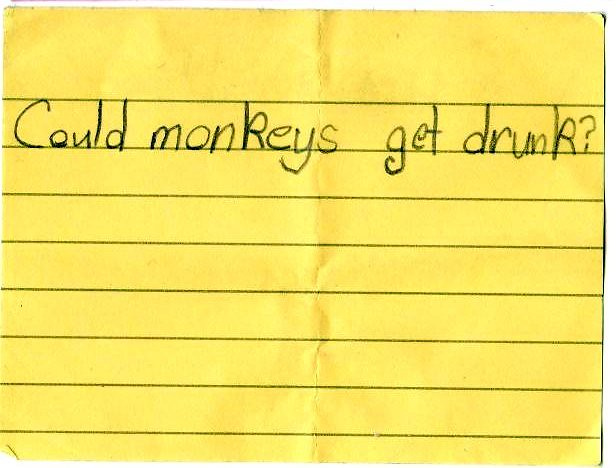 Could monkeys get drunk?